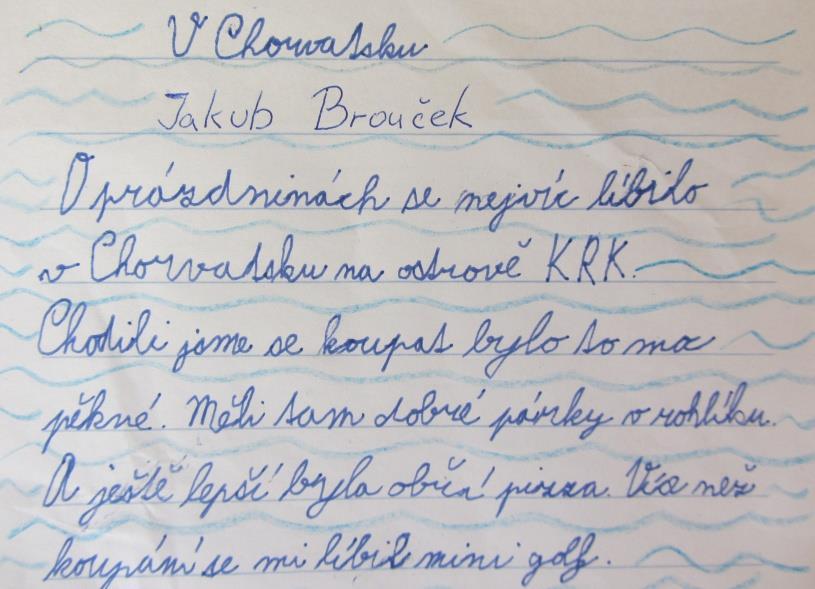 V Chorvatsku
Jakub Brouček
O prázdninách se nejvíc líbilo
v Chorvatsku na ostrově KRK.
Chodili jsme se koupat bylo to moc
pěkné. Měli tam dobré párky v rohlíku.
A ještě lepší byla obří pizza. Víc než
koupání se mi líbil mini golf.